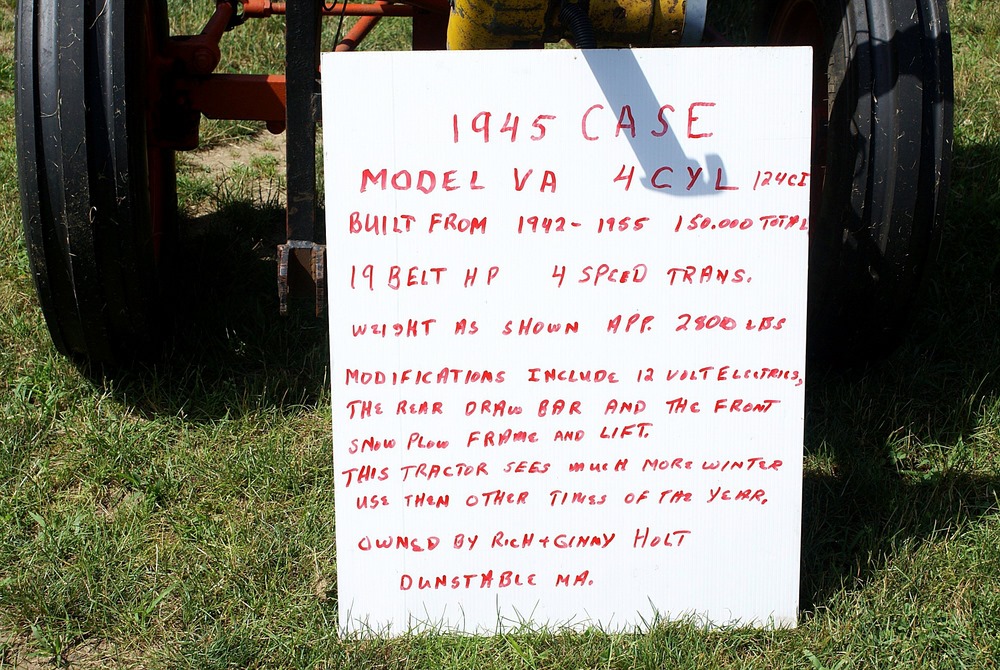 1945 CASE
MODEL VA 4 CYL 124CI
BUILT FROM 1942- 1955 150.000 TOTAL
19 BELT HP 4 SPEED TRANS.
WEIGHT AS SHOWN APP. 2800 LBS
MODIFICATIONS INCLUDE 12 VOLT ELECTRICS,
THE REAR DRAW BAR AND THE FRONT
SNOW PLOW FRAME AND LIFT.
THIS TRACTOR SEES MUCH MORE WINTER
USE THEN OTHER TIMES OF THE YEAR,
OWNED BY RICH + GINNY HOLT
DUNSTABLE MA.